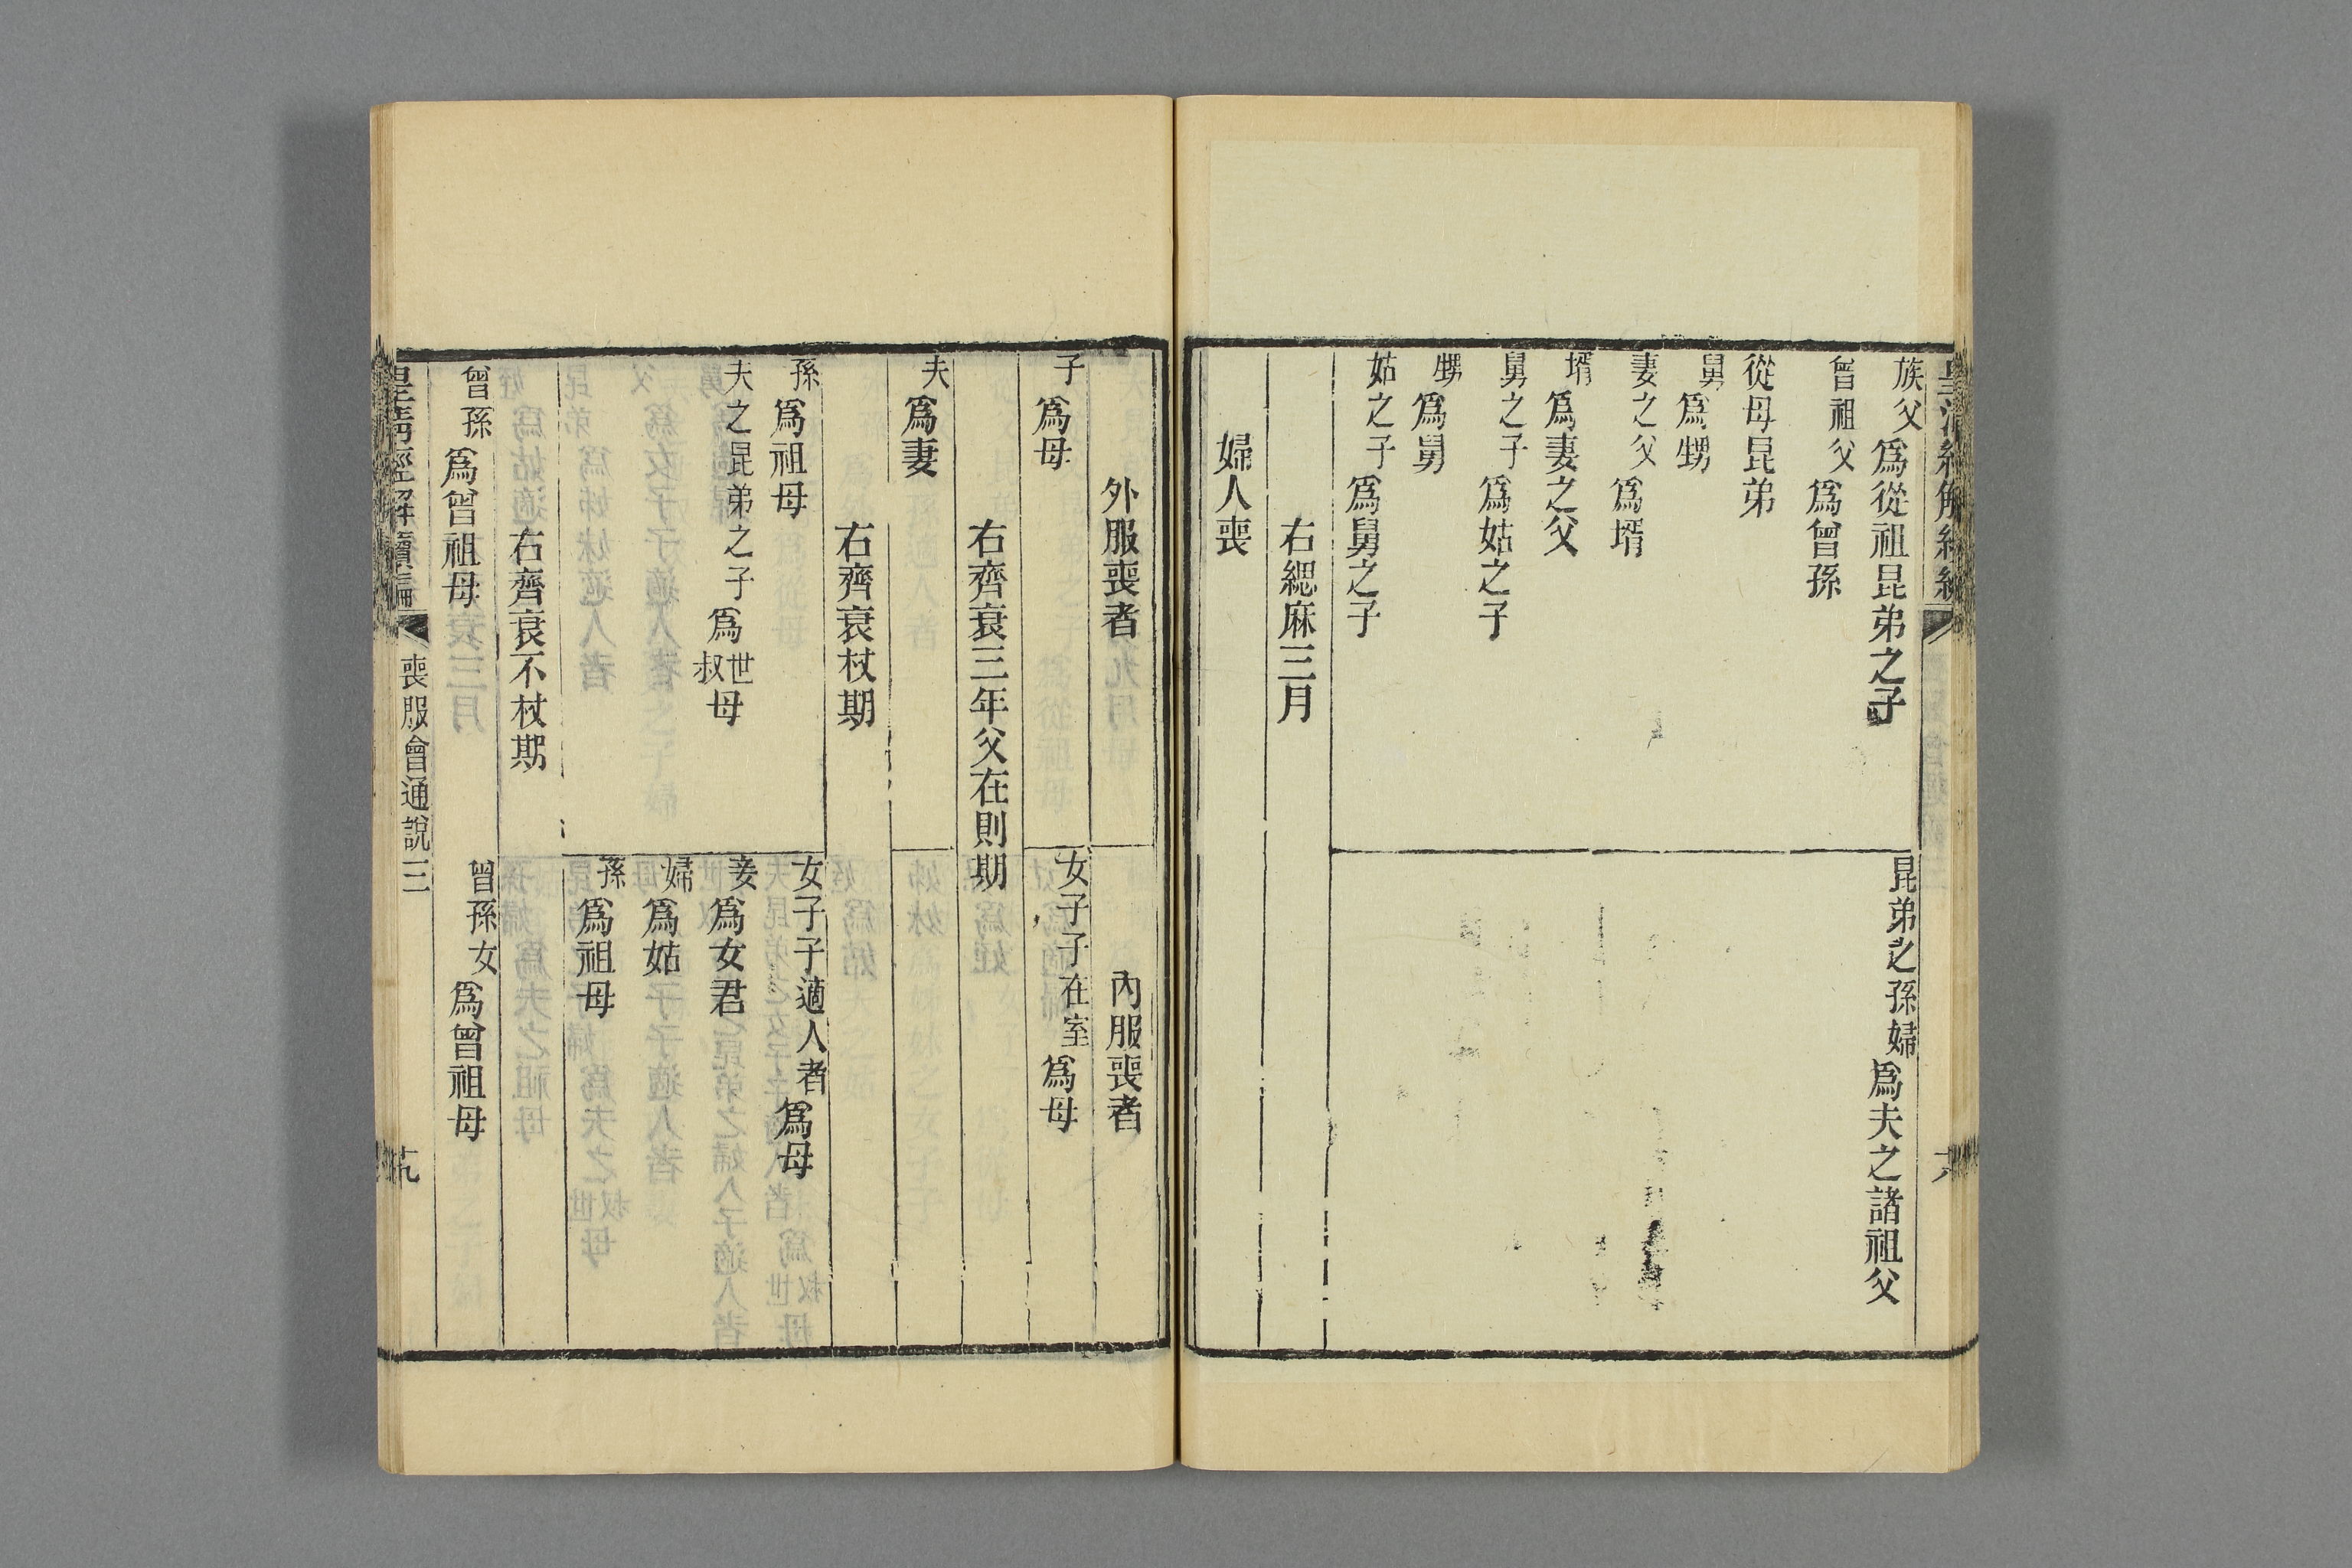 皇清經解續編
族父爲從祖昆弟之子
昆弟之孫婦爲夫之諸祖父
曾祖父爲曾孫
從母昆弟
舅爲甥
妻之父爲壻
壻爲妻之父
舅之子爲姑之子
甥爲舅
姑之子爲舅之子
右緦麻三月
婦人喪
外服喪者
內服喪者
子爲母
女子子在室爲母
右齊衰三年父在則期
夫爲妻
右齊衰杖期
孫爲祖母
女子子適人者爲母
夫之昆弟之子爲世叔母
妾爲女君
婦爲姑
孫爲祖母
右齊衰不杖期
曾孫爲曾祖母
曾孫女爲曾祖母
皇清經解續編
喪服會通說三